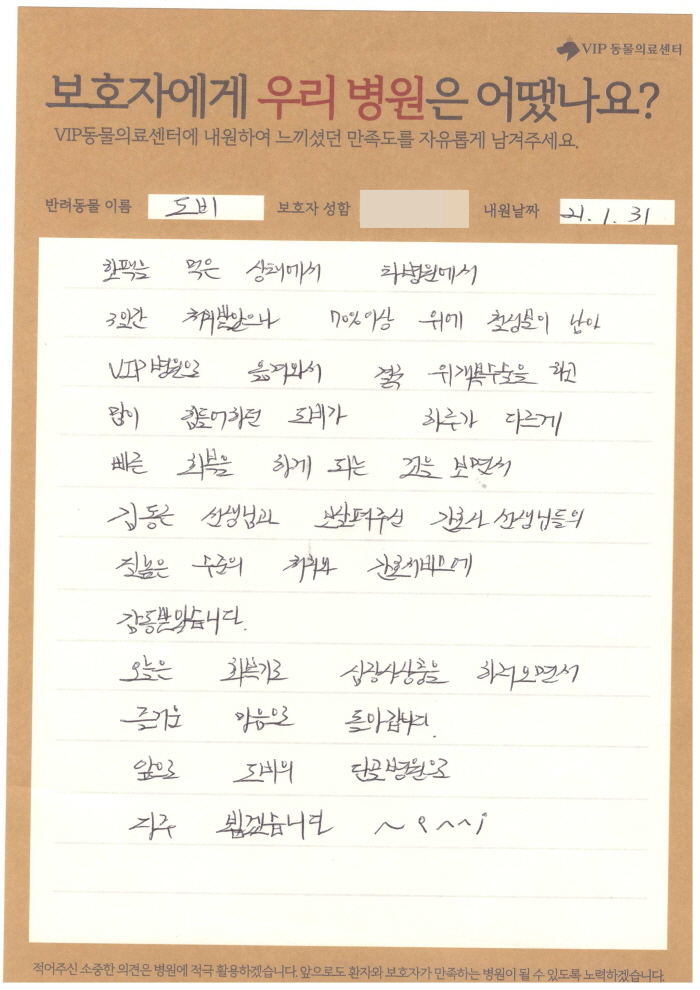 VIP 동물의료센터
보호자에게 우리 병원은 어땠나요?
VIP동물의료센터에 내원하여 느끼셨던 만족도를 자유롭게 남겨주세요.
반려동물 이름 도비 보호자 성함 내원날짜 21. 1. 31
핫팩을 먹은 상태에서 타병원에서
3일간 처치받았으나 70%이상 위에 철성분이 남아
VIP병원으로 옮겨와서 결국 위개복수술을 하고
많이 힘들어하던 도비가 하루가 다르게
빠른 회복을 하게 되는 것을 보면서
김동은 선생님과 보살펴주신 간호사 선생님들의
질높은 수준의 처치와 간호서비스에
감동받았습니다.
오늘은 회복기로 심장사상충을 하러오면서
즐거운 마음으로 돌아갑니다.
앞으로 도비의 단골병원으로
자주 뵙겠습니다 ~ ^^
적어주신 소중한 의견은 병원에 적극 활용하겠습니다. 앞으로도 환자와 보호자가 만족하는 병원이 될 수 있도록 노력하겠습니다.